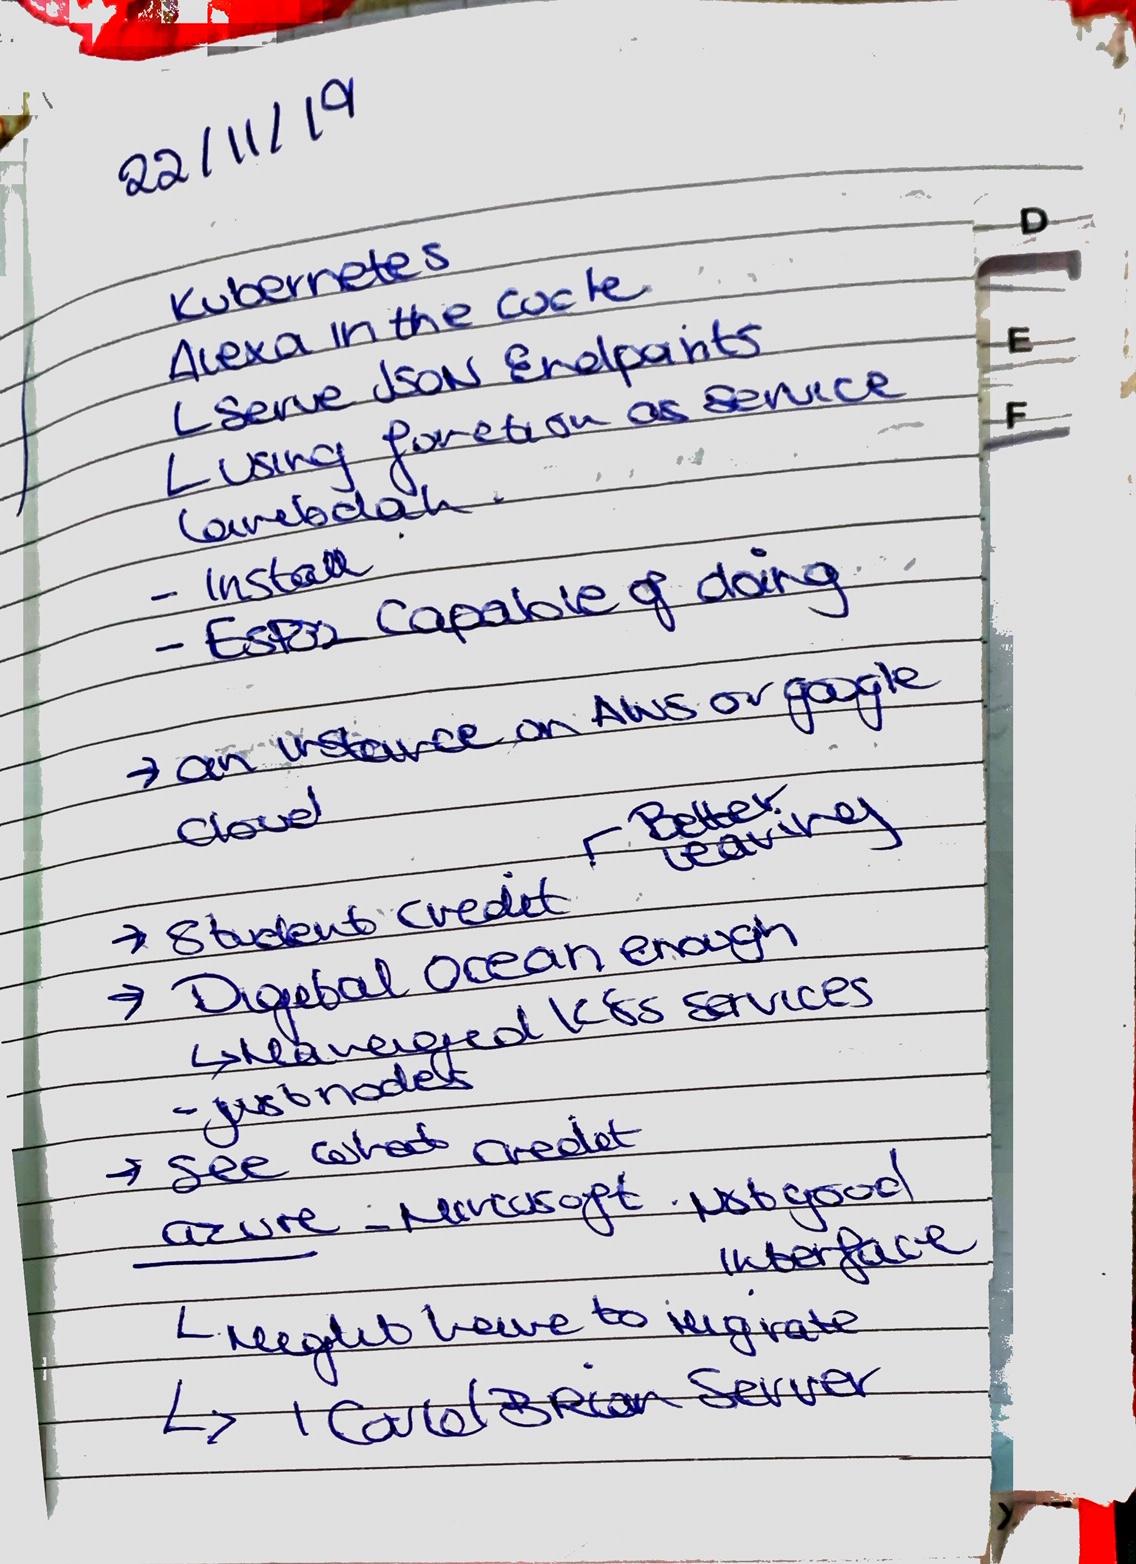 22/11/19
D
Kubernetes
Alexa in the
E
↳ Serve JSON Endpoints
F
↳ using function as service
- Install
- ESP32 Capable of doing
→ an instance on AWS or google
Cloud
Better
→ Student credit
→ Digital Ocean enough
↳ Managed K8s services
- just nodes
→ See what credit
azure - Microsoft . Not good
interface
↳ Might have to migrate
↳ Server